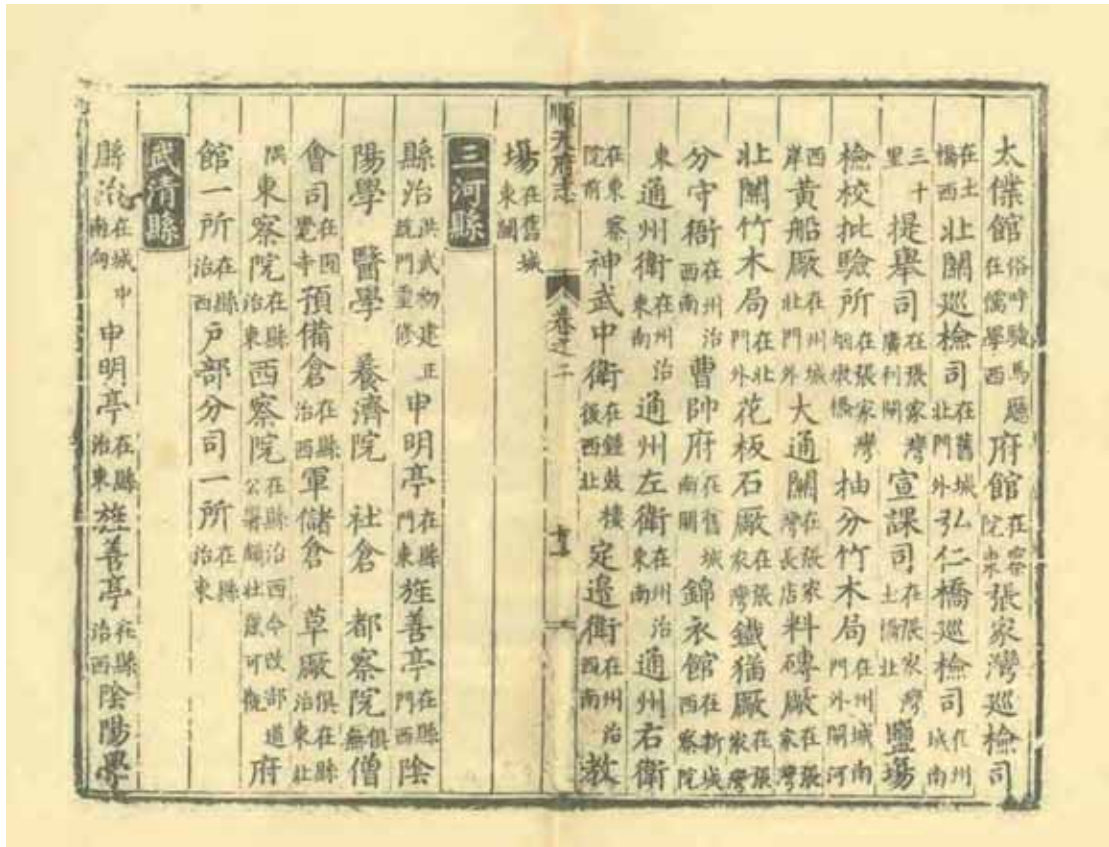 太僕館俗呼驗馬廳在儒學西府館在察院東張家灣巡檢司
在土橋西北關巡檢司在舊城北門外弘仁橋巡檢司在州城南
三十里提舉司在張家灣廣利閘宣課司在張家灣土橋北鹽場
檢校批驗所在張家灣烟墩橋抽分竹木局在州城南門外閘河
西岸黃船厰在州城北門外大通關在張家灣長店料磚厰在張家灣
北關竹木局在北門外花板石厰在張家灣鐵猫厰在張家灣
分守衙在州治西南曹帥府在舊城南關錦衣館在新城西察院
東通州衛在州治東南通州左衛在州治東南通州右衛
在東察院前神武中衛在鐘鼓樓後西北定邊衛在州治西南教
順天府志 卷之二
場在舊城東關
三河縣
縣治洪武初建正統門重修申明亭在縣門東旌善亭在縣門西陰
陽學 醫學 養濟院 社倉 都察院俱無僧
會司在圓覺寺預備倉在縣治西軍儲倉 草厰俱在縣治東北
隅東察院在縣治東西察院在縣治西今改部道公署頗壯麗可觀府
館一所在縣治西戶部分司一所在縣治東
武清縣
縣治在城中南向申明亭在縣治東旌善亭在縣治西陰陽學